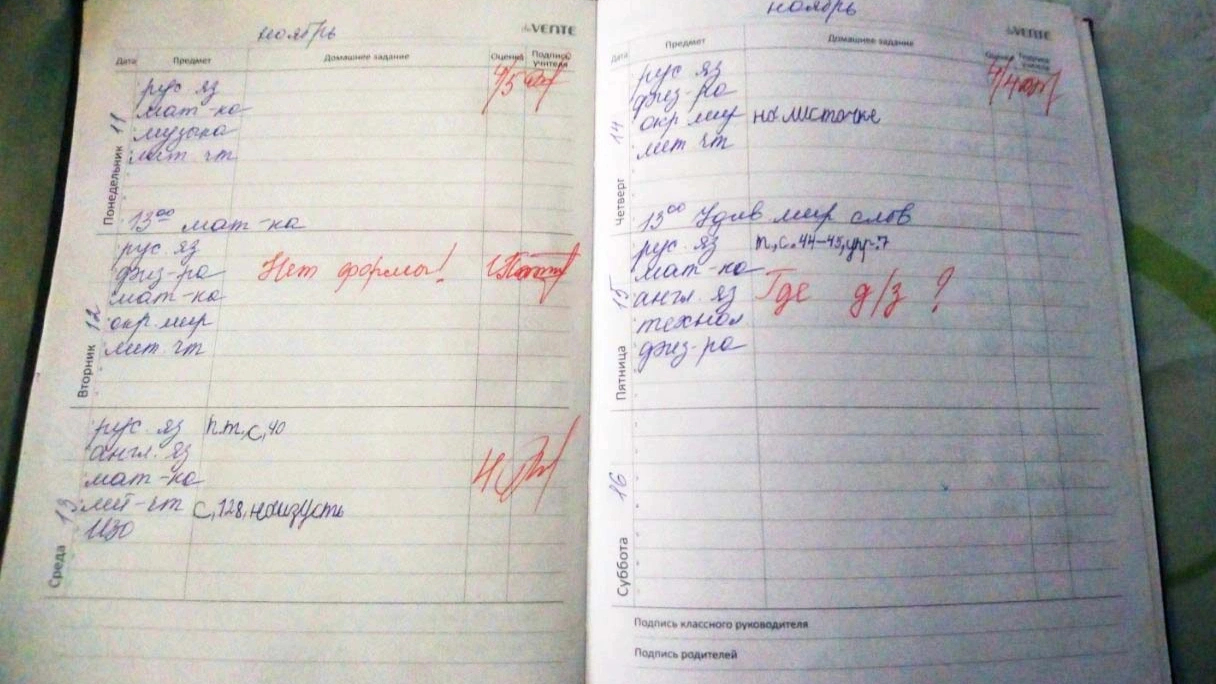 ноябрь
deVENTE
Дата Предмет Домашнее задание Оценка Подпись учителя
Понедельник 11
рус яз 4/5
мат-ка
музыка
лит. чт
13⁰⁰ мат-ка
Вторник 12
рус. яз
физ-ра Нет формы!
мат-ка
окр. мир
лит. чт
Среда 13
рус. яз п.т, с, 40
англ. яз
мат-ка 4
лит-чт с, 128, наизусть
ИЗО
ноябрь
deVENTE
Дата Предмет Домашнее задание Оценка Подпись учителя
Четверг 14
рус яз 4/4
физ-ра
окр. мир на листочке
лит чт
13⁰⁰ Удив мир слов
Пятница 15
рус. яз п, с. 44-45, упр. 7
мат-ка
англ. яз Где д/з ?
технол
физ-ра
Суббота 16
Подпись классного руководителя
Подпись родителей